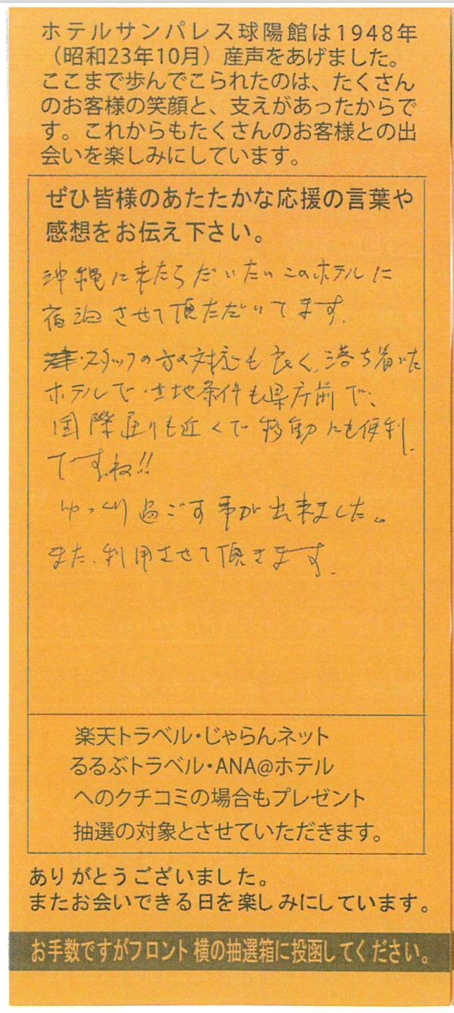 ホテルサンパレス球陽館は1948年
（昭和23年10月）産声をあげました。
ここまで歩んでこられたのは、たくさん
のお客様の笑顔と、支えがあったからで
す。これからもたくさんのお客様との出
会いを楽しみにしています。
ぜひ皆様のあたたかな応援の言葉や
感想をお伝え下さい。
沖縄に来たらだいたいこのホテルに
宿泊させて頂ただいてます。
スタッフの方の対応も良く、落ち着いた
ホテルで、立地条件も県庁前で、
国際通りも近くで移動にも便利
ですね!!
ゆっくり過ごす事が出来ました。
また、利用させて頂きます。
楽天トラベル・じゃらんネット
るるぶトラベル・ANA@ホテル
へのクチコミの場合もプレゼント
抽選の対象とさせていただきます。
ありがとうございました。
またお会いできる日を楽しみにしています。
お手数ですがフロント横の抽選箱に投函してください。